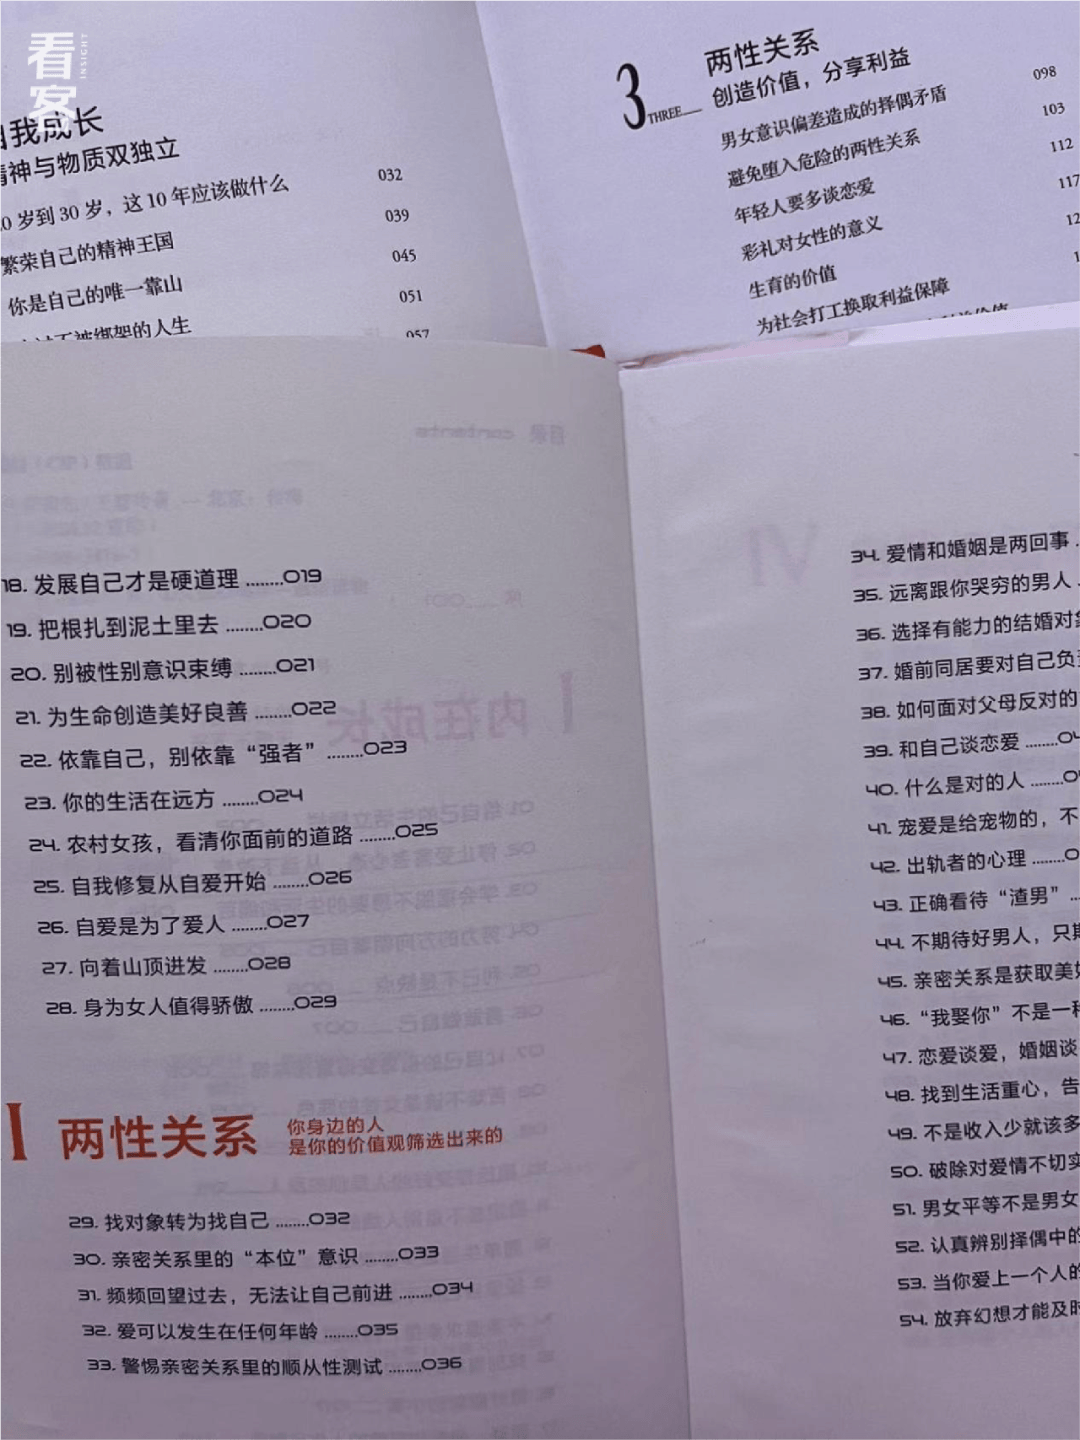 看客
INSIGHT
自我成长
精神与物质双独立
0岁到30岁，这10年应该做什么 032
繁荣自己的精神王国 039
你是自己的唯一靠山 045
不被绑架的人生 051
057
3
THREE
两性关系
创造价值，分享利益
男女意识偏差造成的择偶矛盾 098
避免堕入危险的两性关系 103
年轻人要多谈恋爱 112
彩礼对女性的意义 117
生育的价值 12
为社会打工换取利益保障 1
18. 发展自己才是硬道理 ........019
19. 把根扎到泥土里去 ........020
20. 别被性别意识束缚 ........021
21. 为生命创造美好良善 ........022
22. 依靠自己，别依靠“强者” ........023
23. 你的生活在远方 ........024
24. 农村女孩，看清你面前的道路 ........025
25. 自我修复从自爱开始 ........026
26. 自爱是为了爱人 ........027
27. 向着山顶进发 ........028
28. 身为女人值得骄傲 ........029
I 两性关系
你身边的人
是你的价值观筛选出来的
29. 找对象转为找自己 ........032
30. 亲密关系里的“本位”意识 ........033
31. 频频回望过去，无法让自己前进 ........034
32. 爱可以发生在任何年龄 ........035
33. 警惕亲密关系里的顺从性测试 ........036
34. 爱情和婚姻是两回事
35. 远离跟你哭穷的男人
36. 选择有能力的结婚对象
37. 婚前同居要对自己负责
38. 如何面对父母反对的
39. 和自己谈恋爱 ........04
40. 什么是对的人 ........0
41. 宠爱是给宠物的，不
42. 出轨者的心理 ........0
43. 正确看待“渣男”
44. 不期待好男人，只期
45. 亲密关系是获取美好
46. “我娶你”不是一种
47. 恋爱谈爱，婚姻谈
48. 找到生活重心，告
49. 不是收入少就该多
50. 破除对爱情不切实
51. 男女平等不是男女
52. 认真辨别择偶中的
53. 当你爱上一个人的
54. 放弃幻想才能及时